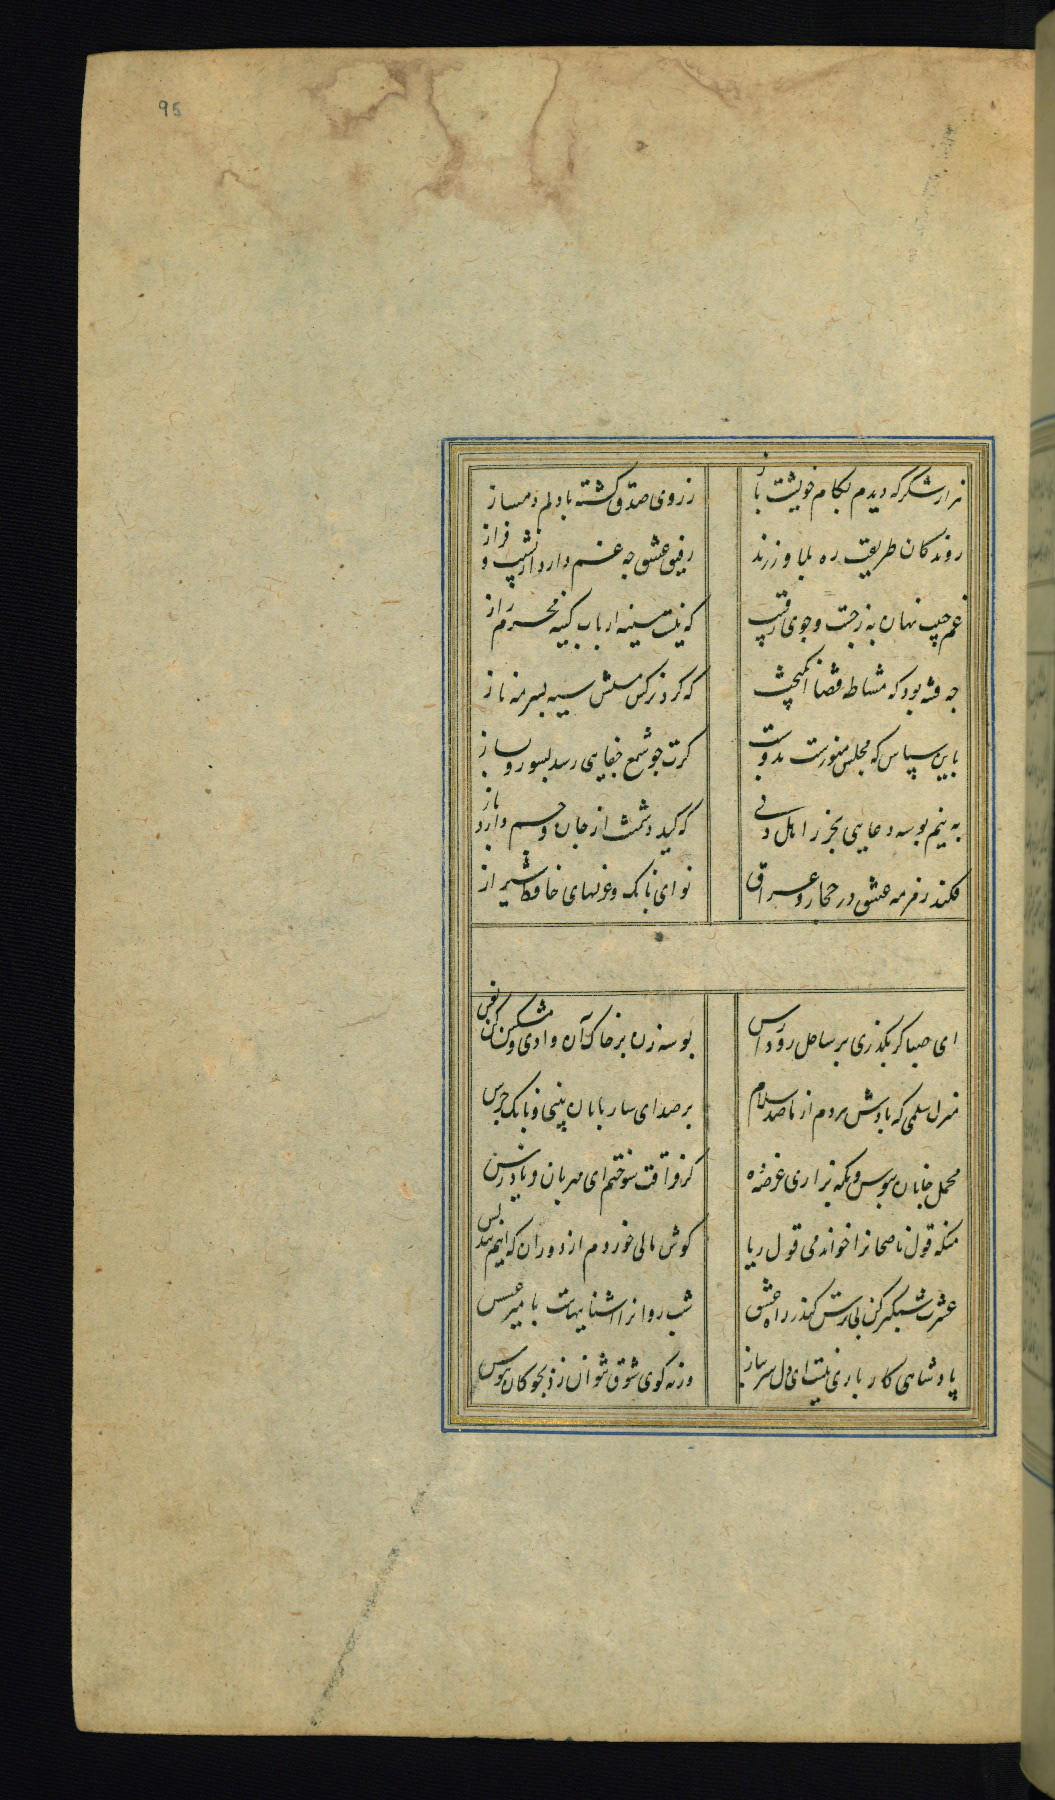 95
هزار شکر که دیدم بکام خویشت باز
ز روی صدق کشته با دلم دمساز
روندکان طریقت ره بلا ورزند
رفیق عشق چه غم دارد از نشیب و فراز
غم حبیب نهان به ز جست و جوی رقیب
که نیست سینه ارباب کینه محرم راز
چه فتنه بود که مشاطه قضا انکیخت
که کرد نرکس مستش سیه بسرمه ناز
باین سپاس که مجلس منورست بدوست
کرت چو شمع جفایی رسد بسوز و بساز
به نیم بوسه دعایی بخر ز اهل دلی
که کید دشمنت از جان و جسم دارد باز
فکند زمزمه عشق در حجاز و عراق
نوای بانک و غزلهای حافظ شیراز
ای صبا کر بکذری بر ساحل رود ارس
بوسه زن بر خاک آن وادی و مشکین کن نفس
منزل سلمی که بادش هر دم از ما صد سلام
بر صدای ساربانان بینی و بانک جرس
محمل جانان ببوس و آنکه بزاری عرضه ده
کز فراقت سوختم ای مهربان فریاد رس
منکه قول ناصحانرا خواندمی قول ربا
کوش مالی خوردم از دوران که اینم پند بس
عشرت شبکیر کن بی ترس کندر راه عشق
شب روانرا آشناییهاست با میر عسس
پادشاهی کار بازی نیست ای دل سر بباز
ورنه کوی شوق نتوان زد بچوکان هوس